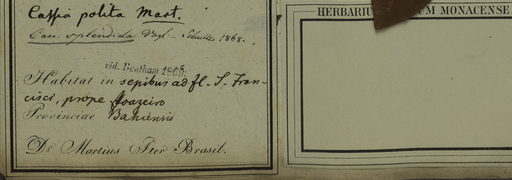 Cassia polita Mart.
Cass. splendida Vogl. - Schultz. 1868.
vid. Bentham 1869.
Habitat in sepibus ad fl. S. Fran-
cisci, prope Joazeiro
Provinciae Bahiensis
Dr Martius Iter Brasil.
HERBARIUM MONACENSE